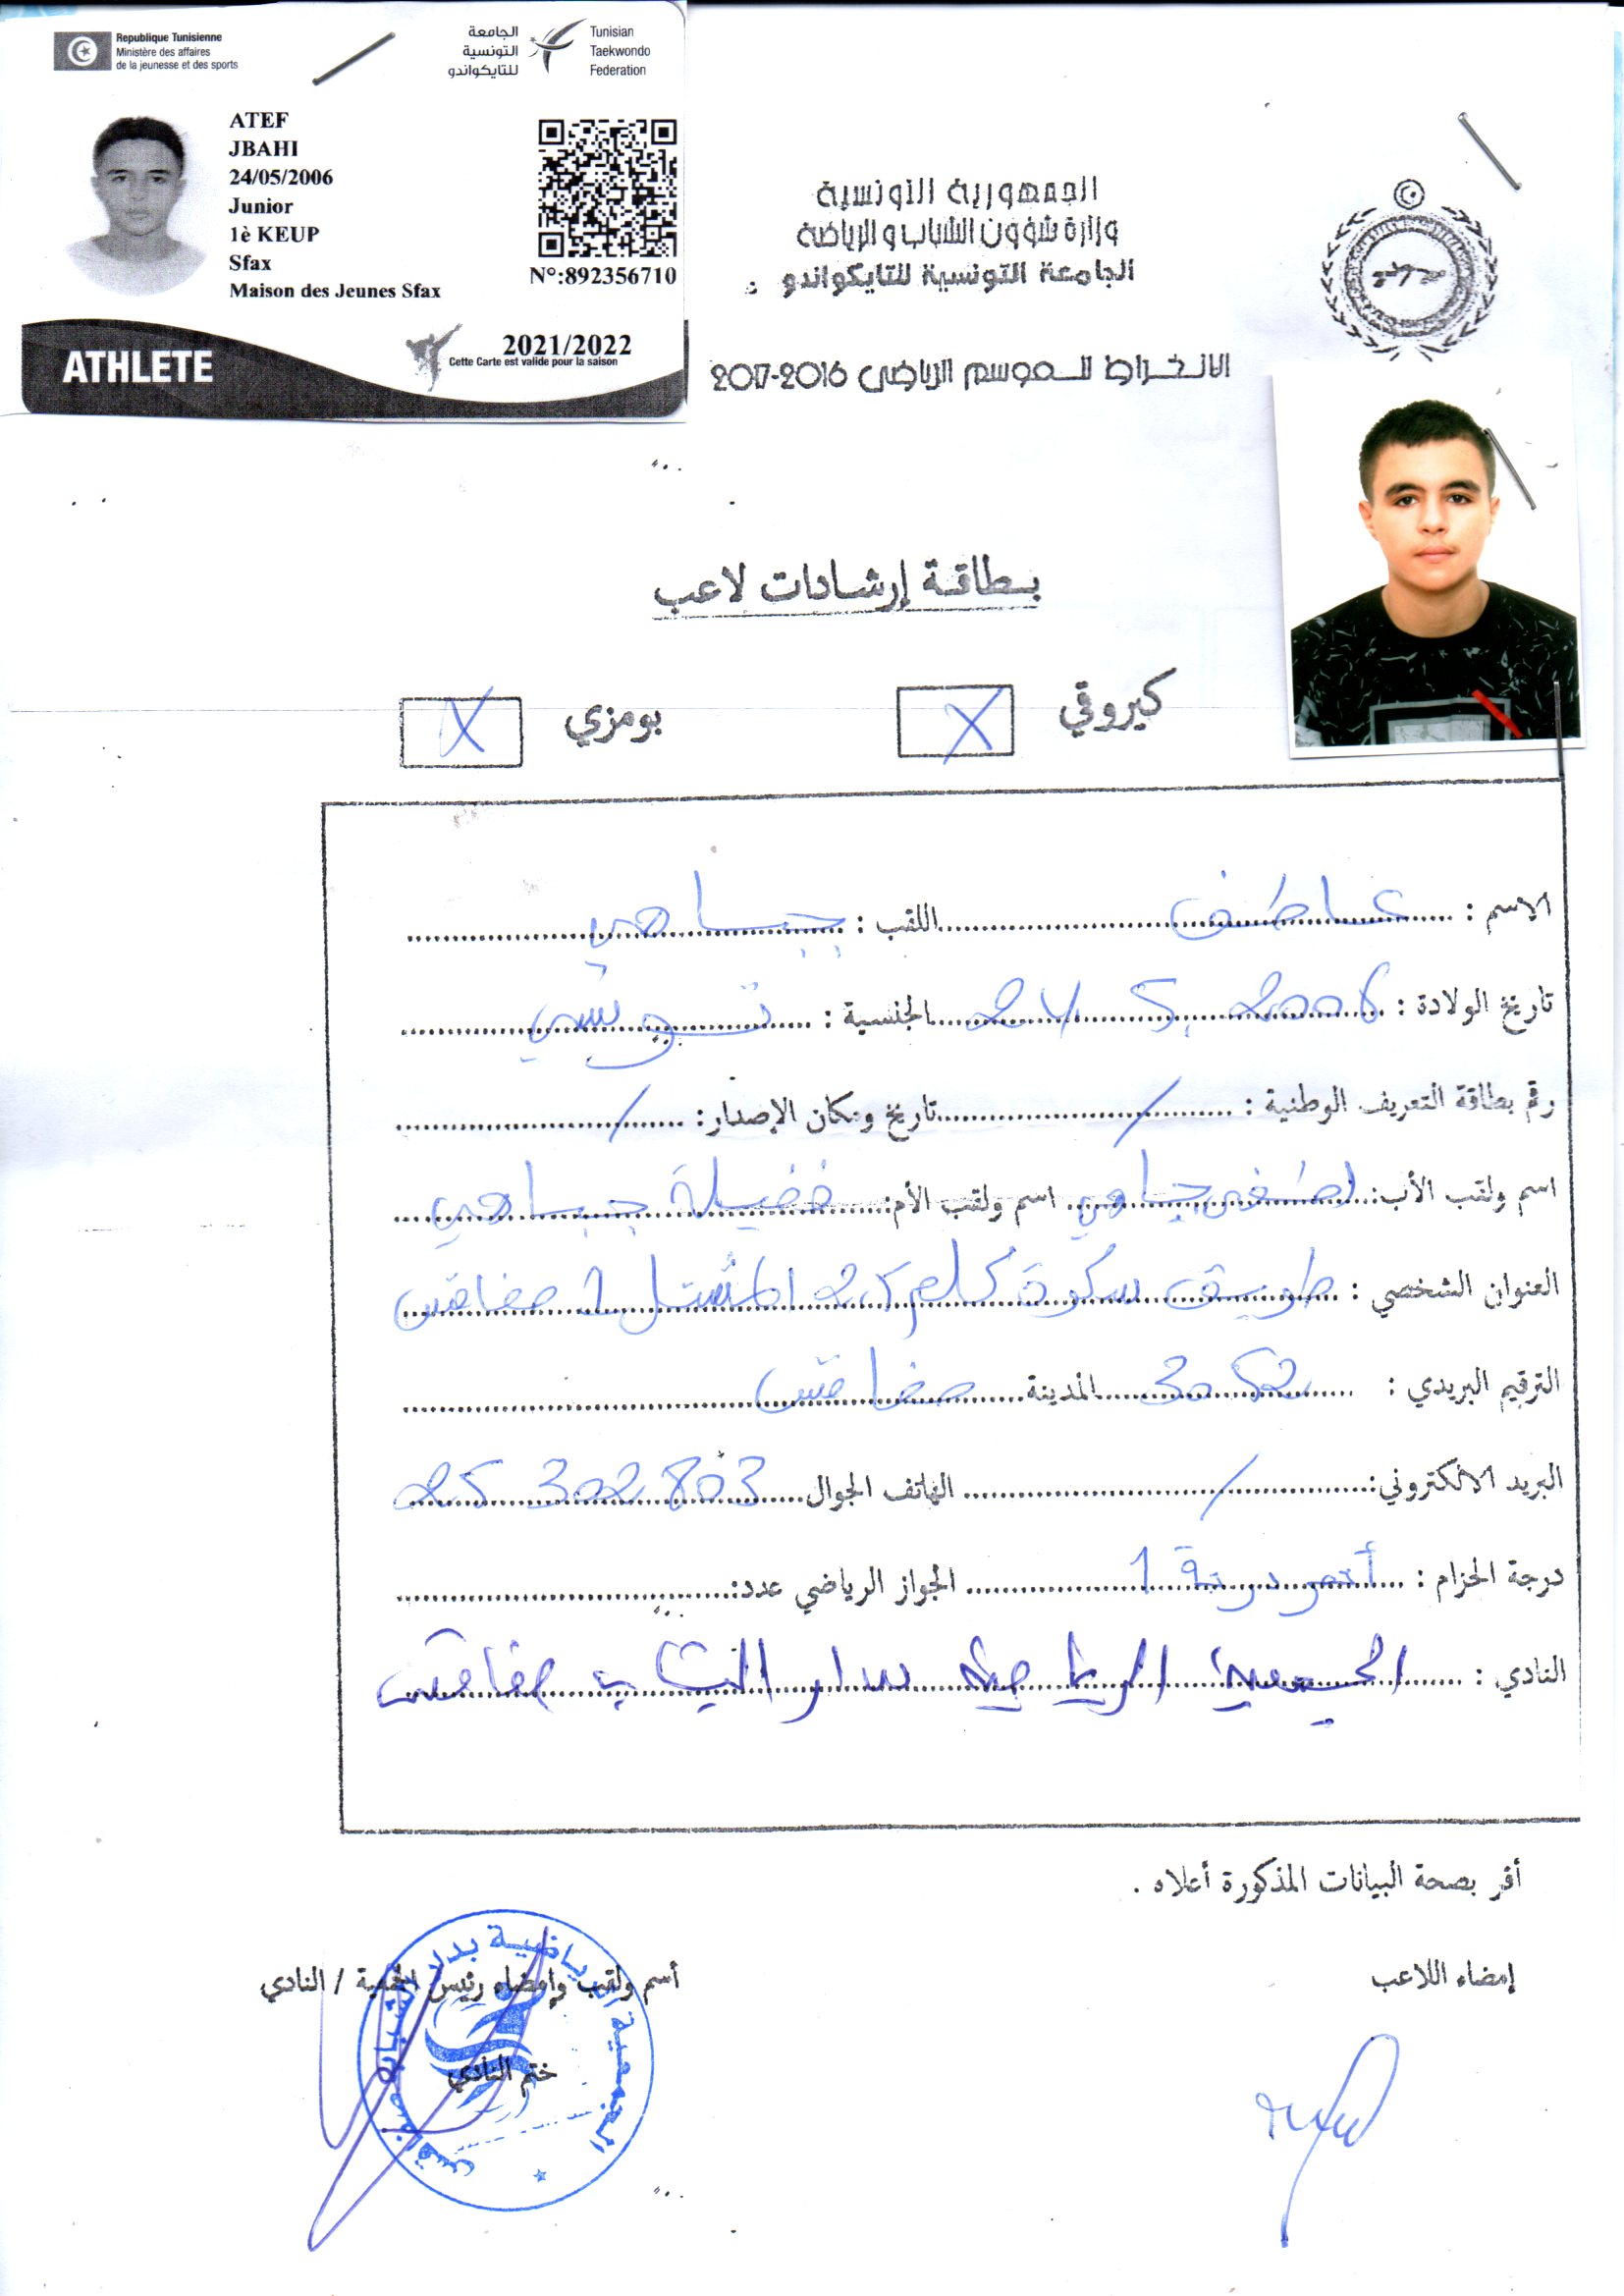 Republique Tunisienne
Ministère des affaires
de la jeunesse et des sports
الجامعة
التونسية
للتايكواندو
Tunisian
Taekwondo
Federation
ATEF
JBAHI
24/05/2006
Junior
1è KEUP
Sfax
Maison des Jeunes Sfax
N°:892356710
2021/2022
Cette Carte est valide pour la saison
ATHLETE
الجمهورية التونسية
وزارة شؤون الشباب والرياضة
الجامعة التونسية للتايكواندو :
الانخراط للموسم الرياضي 2016-2017
بطاقة إرشادات لاعب
كيروقي X بومزي X
الاسم : عاطف اللقب : جباهي
تاريخ الولادة : 24. 5. 2006 الجنسية : تونسي
رقم بطاقة التعريف الوطنية : / تاريخ ومكان الإصدار: /
اسم ولقب الأب: جباهي اسم ولقب الأم: فضيلة جباهي
العنوان الشخصي : طريق سكرة كلم 2,5 المشتل 1 صفاقس
الترقيم البريدي : 3052 المدينة صفاقس
البريد الالكتروني: / الهاتف الجوال 25 302 803
درجة الحزام : أحمر درجة 1 الجواز الرياضي عدد:
النادي : الجمعية الرياضية بدار الشباب صفاقس
أقر بصحة البيانات المذكورة أعلاه .
إمضاء اللاعب
أسم ولقب وإمضاء رئيس الجمعية / النادي
ختم النادي
الجمعية الرياضية بدار الشباب صفاقس